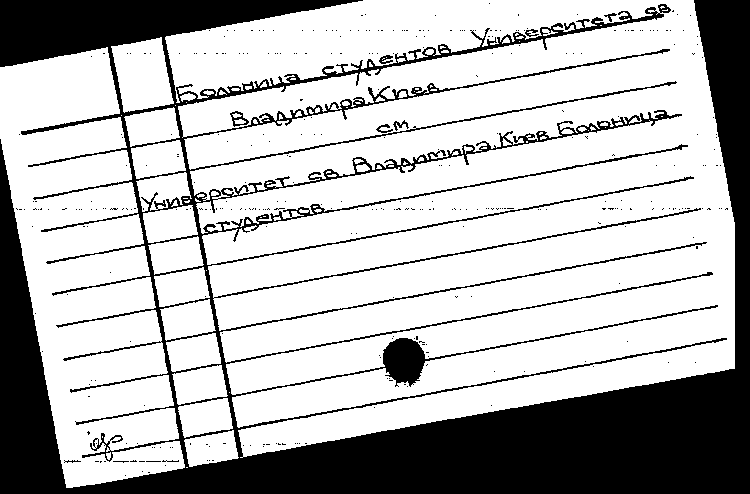 Больница студентов Университета св.
Владимира. Киев.
см.
Университет св. Владимира. Киев. Больница
студентов.